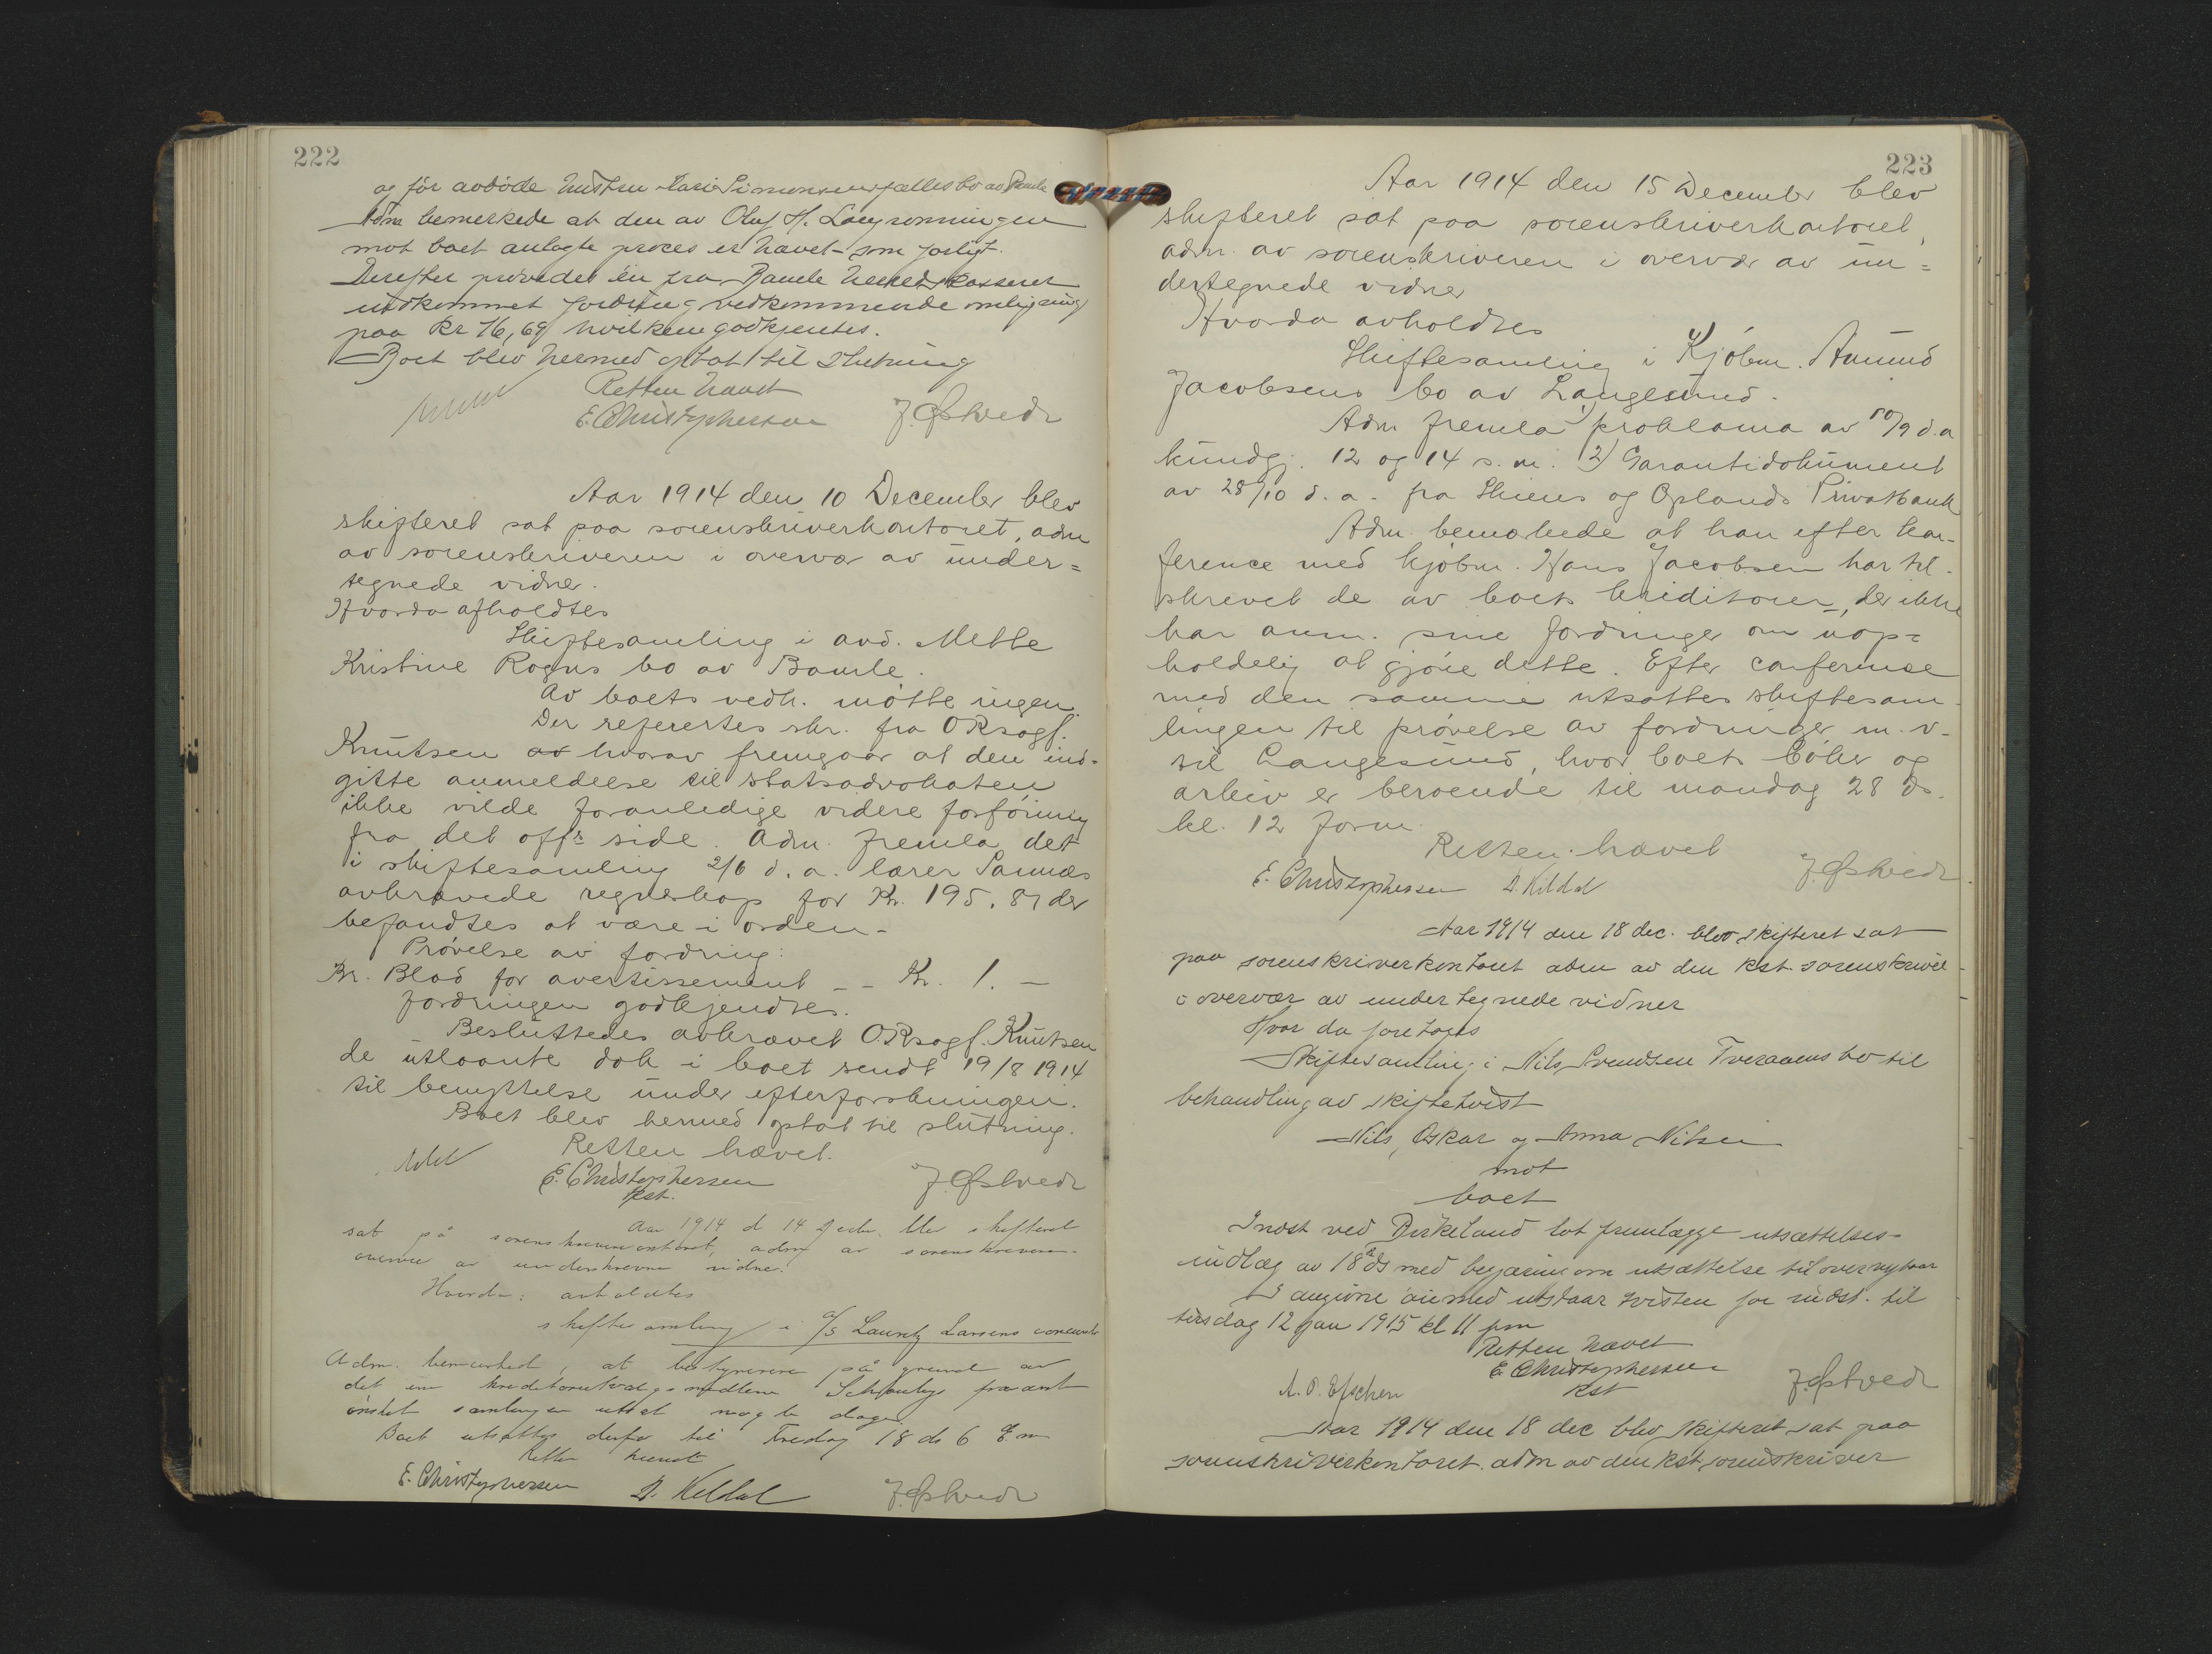 222
og før avdøde hustru Karie Simonsens fællesbo av Bamle
Adm bemerkede at den av Oluf H. Langrønningen
mot boet anlagte proces er hævet som forligt.
Derefter prøvedes en fra Bamle herredskasserer
indkommet fordring vedkommende omligning
paa kr 16,69 hvilken godkjentes.
Boet blev hermed optat til slutning
Retten hævet
E. Christophersen J. Østvedt
Aar 1914 den 10 December blev
skifteret sat paa sorenskriverkontoret, adm
av sorenskriveren i overvær av under=
tegnede vidner.
Hvorda afholdtes
Skiftesamling i avd. Mette
Kristine Rogns bo av Bamle.
Av boets vedk. møtte ingen.
Der refertes skr. fra ORsagf.
Knutsen av hvorav fremgaar at den ind-
gitte anmeldelse til statsadvokaten
ikke vilde foranledige videre forføining
fra det offs side. Adm. fremla det
i skiftesamling 2/6 d. a. lærer Sannæs
avkrævede regnskap for Kr. 195.87 der
befandtes at være i orden.-
Prøvelse av fordring:
Br. Blad for avertissement - - Kr. 1. -
fordringen godkjendtes.
Besluttedes avkrævet O.Rsagf. Knutsen
de utlaante dok i boet sendt 19/8 1914
til benyttelse under efterforskningen.
Boet blev hermed optat til slutning.
Retten hævet.
E. Christophersen J. Østvedt
Kst.
Aar 1914 d 14 Decbr. blev skifteret
sat på sorenskriverkontoret, adm av sorenskriveren
overvær av underskrevne vidne.
Hvorda: avholdtes
skiftesamling i A/S Lauritz Larsens concurs
Adm. bemærket, at bestyreren på grund av
det ene kreditorutvalgsmedlem
ønsket samlingen utsat nogle dage.
Boet utsattes derfor til Fredag 18 ds 6 Em
Retten hævet
E. Christophersen D. Kildal J. Østvedt
223
Aar 1914 den 15 December blev
skifteret sat paa sorenskriverkontoret,
adm. av sorenskriveren i overvær av un=
dertegnede vidner
Hvorda avholdtes
Skiftesamling i Kjøbm. Aanund
Jacobsens bo av Langesund.
Adm fremla 1) proklama av 10/9 d.a
kundgj. 12 og 14 s. m. 2) Garantidokument
av 28/10 d. a. fra Skiens og Oplands Privatbank
Adm. bemærkede at han efter kon-
ference med kjøbm. Hans Jacobsen har til-
skrevet de av boets kreditorer, der ikke
har anm. sine fordringer om uop=
holdelig at gjøre dette. Efter conference
med den samme utsattes skiftesam-
lingen til prøvelse av fordringer m. v.
til Langesund, hvor boets bøker og
arkiv er beroende til mandag 28 ds.
kl. 12 form.
Retten hævet
E. Christophersen D. Kildal J. Østvedt
Aar 1914 den 18 dec. blev skifteret sat
paa sorenskriverkontoret adm av den kst. sorenskriver
i overvær av undertegnede vidner
Hvor da foretoges
Skiftesamling i Nils Svendsen Tveraaens bo til
behandling av skiftetvist
Nils, Oskar og Anna Nilsen
mot
boet
Indst ved Birkeland lot fremlægge utsættelses-
indlæg av 18 ds med begjæring om utsættelse til over nytaar
I angivne øiemed utstaar tvisten for indst. til
tirsdag 12 jan 1915 kl 11 fm
Retten hævet
E Christophersen
Kst
J. Østvedt
Aar 1914 den 18 dec blev skifteret sat paa
sorenskriverkontoret. adm av den kst. sorenskriver